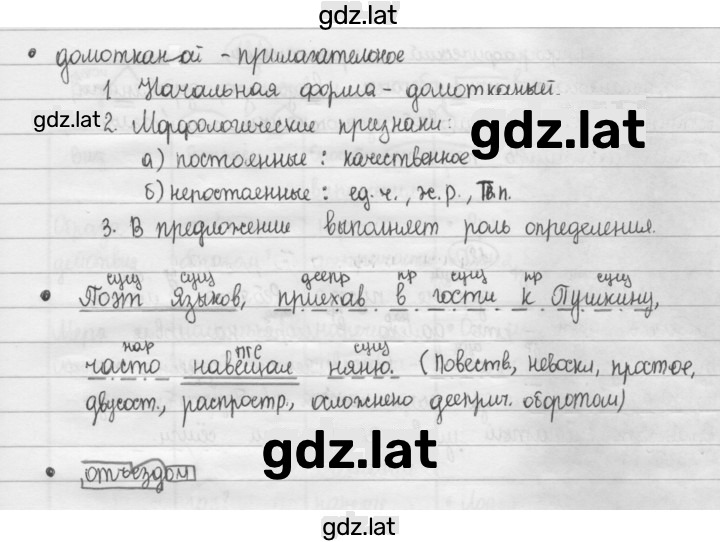 gdz.lat
• домотканой - прилагательное
1. Начальная форма - домотканый.
gdz.lat
2. Морфологические признаки:
gdz.lat
а) постоянные : качественное
б) непостаенные : ед.ч., ж.р., Т.п.
3. В предложение выполняет роль определения.
сущ сущ деепр пр сущ пр сущ
• Поэт Языков, приехав в гости к Пушкину,
нар пгс сущ
часто навещал няню. (Повеств, невоскл, простое,
двусост., распростр, осложнено дееприч. оборотом)
gdz.lat
• отъездом
gdz.lat